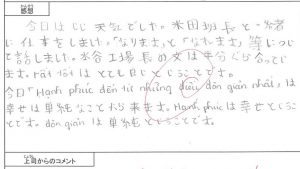 感想
今日はいい天気でした。米田班長と一緒
に仕事をしました。「なります」と「なれます」等につい
て話しました。水谷工場長の文は半分ぐらい合ってい
ます。rất tốt はとても良いということです。
今日「Hạnh phúc đến từ những điều đơn giản nhất」は
幸せは単純なことから来ます。Hạnh phúc は幸せというこ
とです。đơn giản は単純ということです。
上司からのコメント